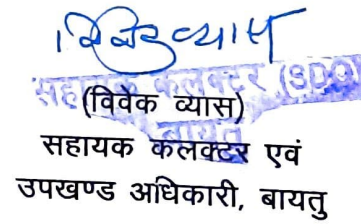 सहायक कलक्टर (SDO)
बायतु
(विवेक व्यास)
सहायक कलक्टर एवं
उपखण्ड अधिकारी, बायतु